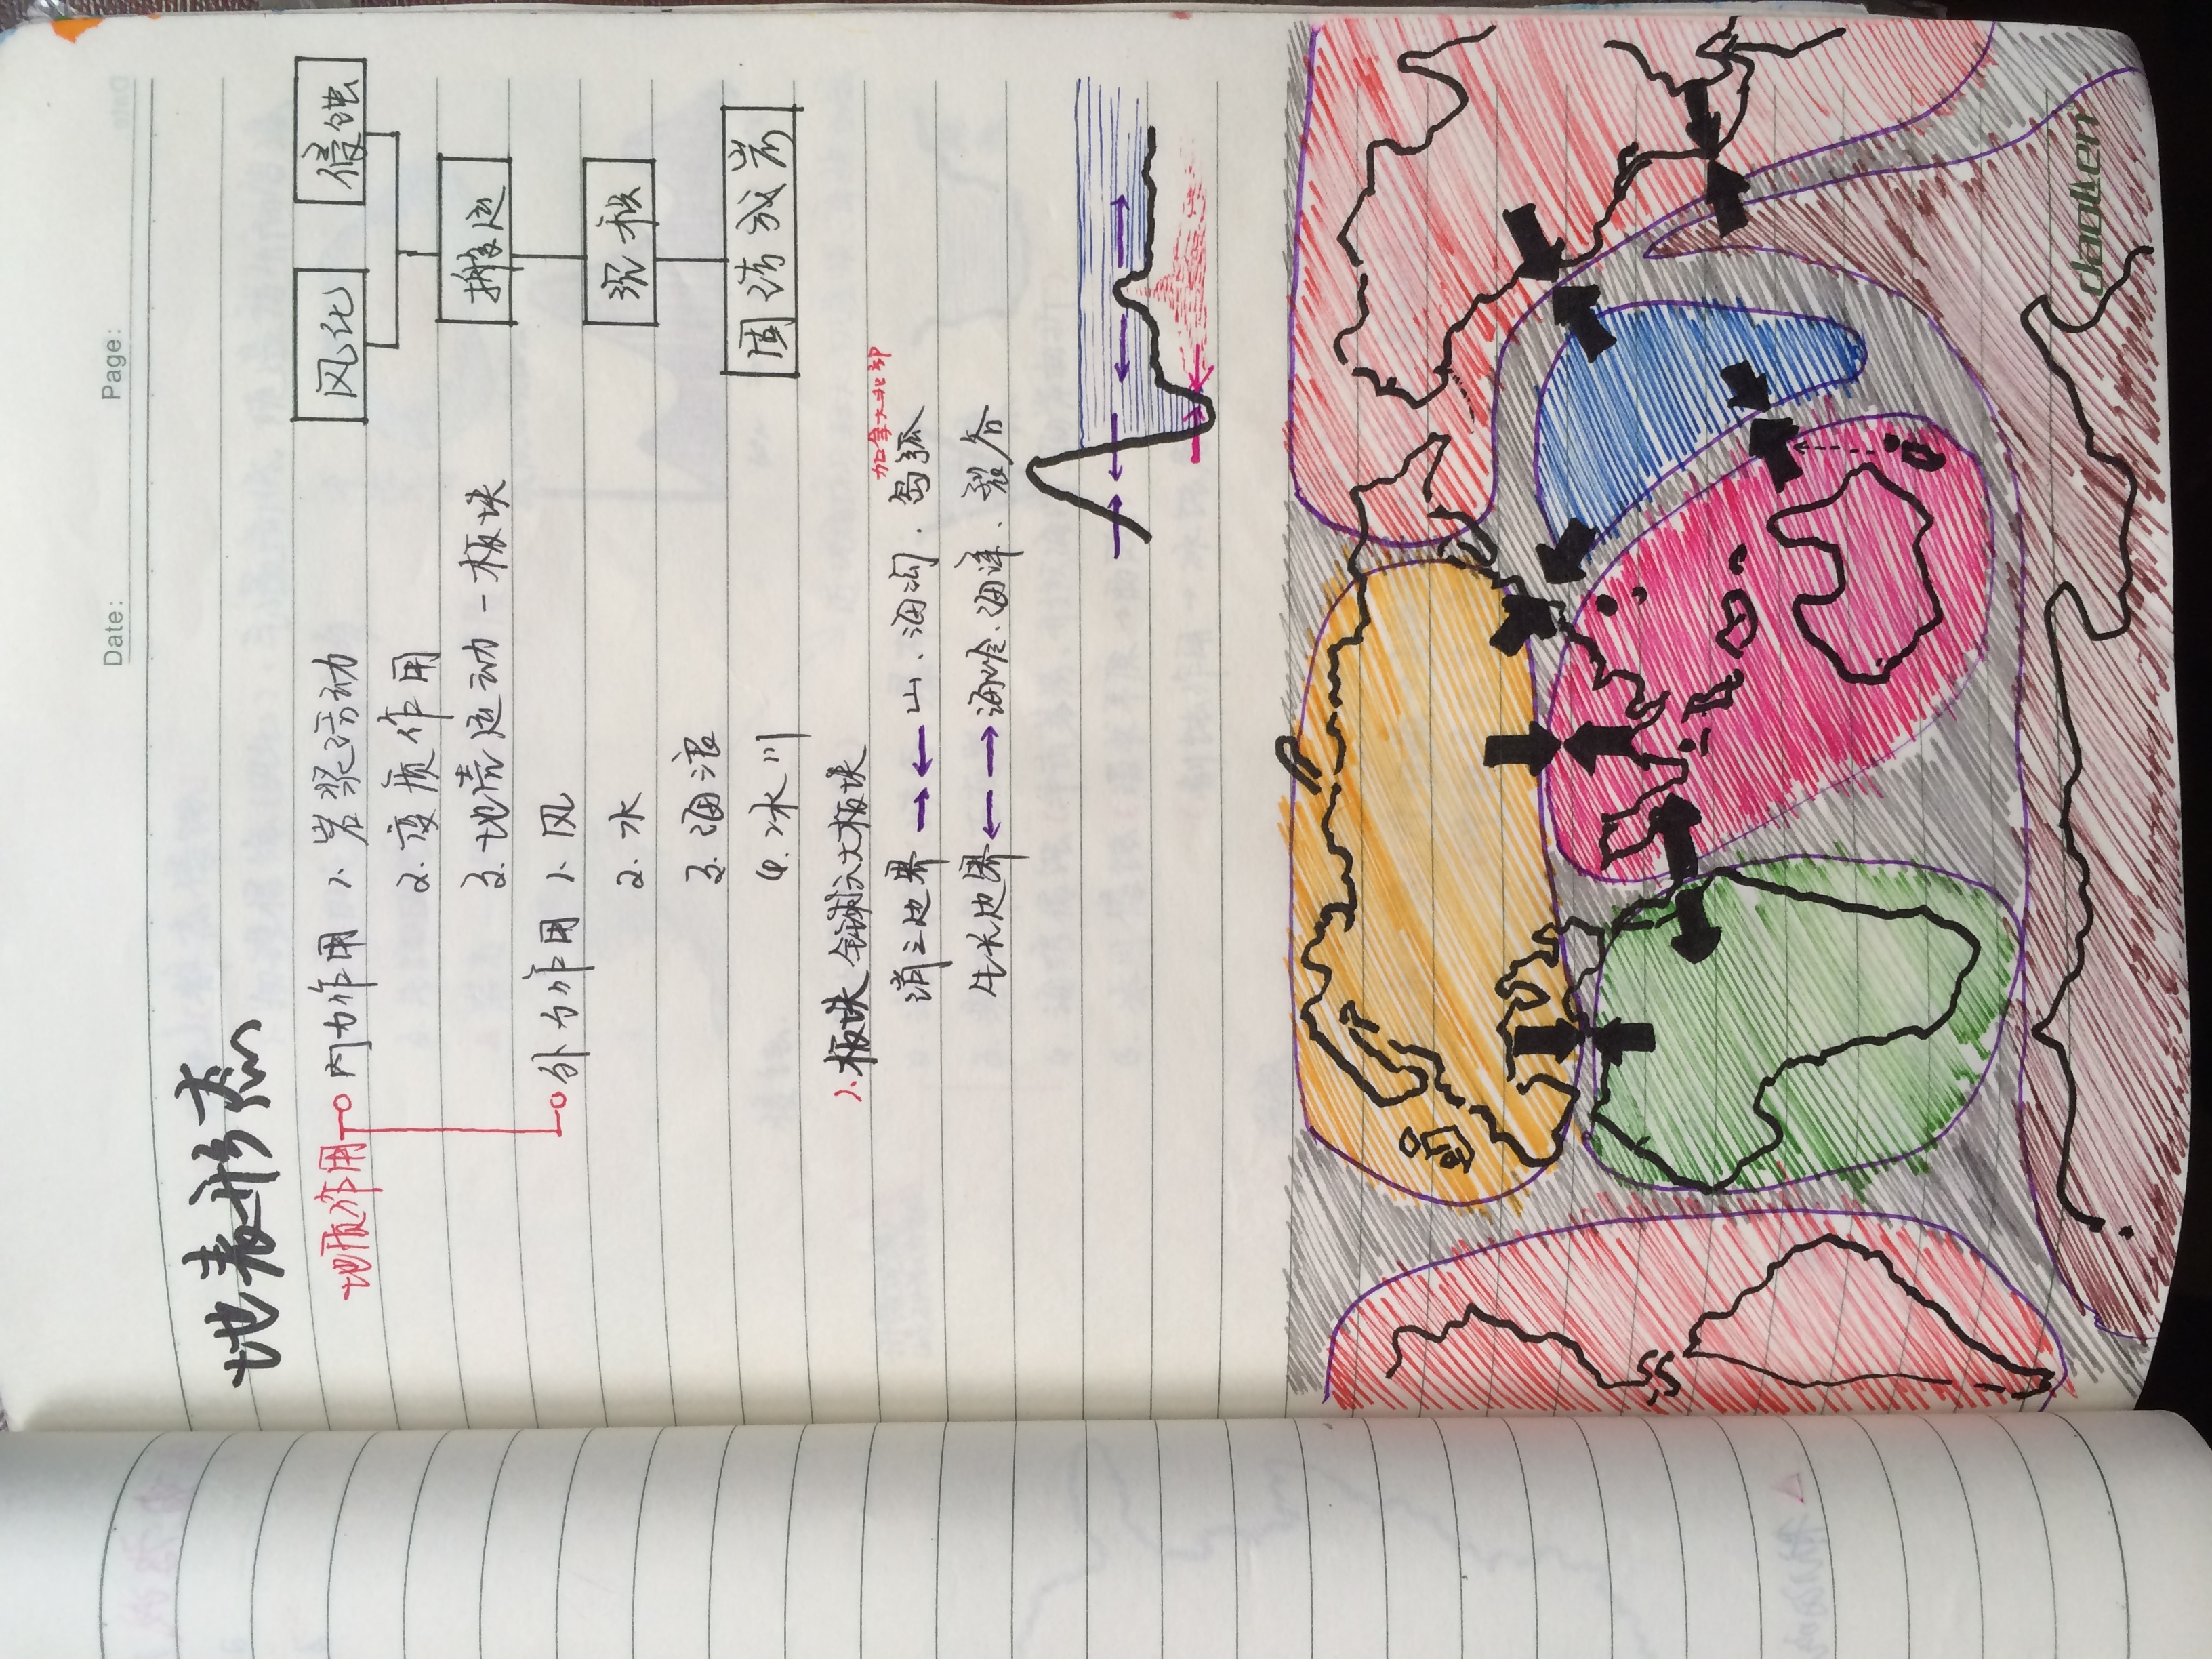 Date:
Page:
地表形态
地质作用 内力作用 1. 岩浆活动
2. 变质作用
3. 地壳运动 - 板块
外力作用 1. 风
2. 水
3. 海浪
4. 冰川
风化 侵蚀
搬运
沉积
固结成岩
1. 板块 全球六大板块
加拿大北部
消亡边界 → ← 山、海沟、岛弧
生长边界 ← → 海岭、海洋、裂谷
daolen